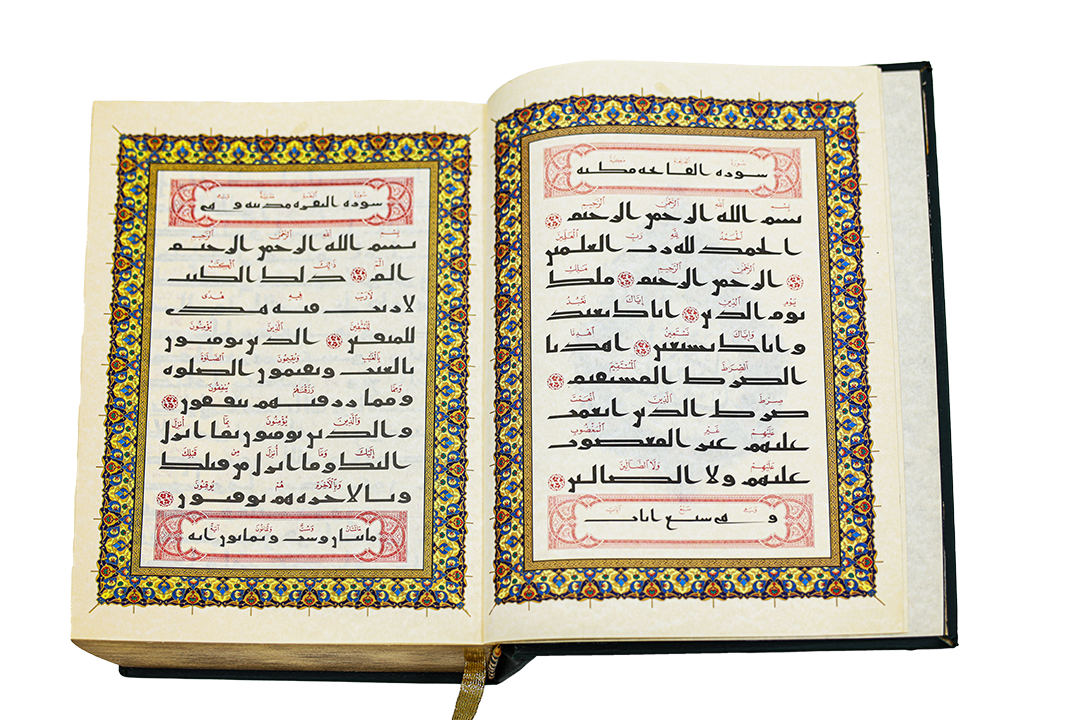 سورة الفاتحة مكية
بسم الله الرحمن الرحيم
الحمد لله رب العلمين
الرحمن الرحيم ملك
يوم الدين اياك نعبد
و اياك نستعين اهدنا
الصرط المستقيم
صرط الذين انعمت
عليهم غير المغضوب
عليهم ولا الضالين
وهي سبع ايات
سورة البقرة مدنية وهي
بسم الله الرحمن الرحيم
الم ذلك الكتب
لا ريب فيه هدى
للمتقين الذين يومنون
بالغيب ويقيمون الصلوة
ومما رزقنهم ينفقون
و الذين يومنون بما انزل
اليك وما انزل من قبلك
وبالاخرة هم يوقنون
مائتان وست وثمانون اية